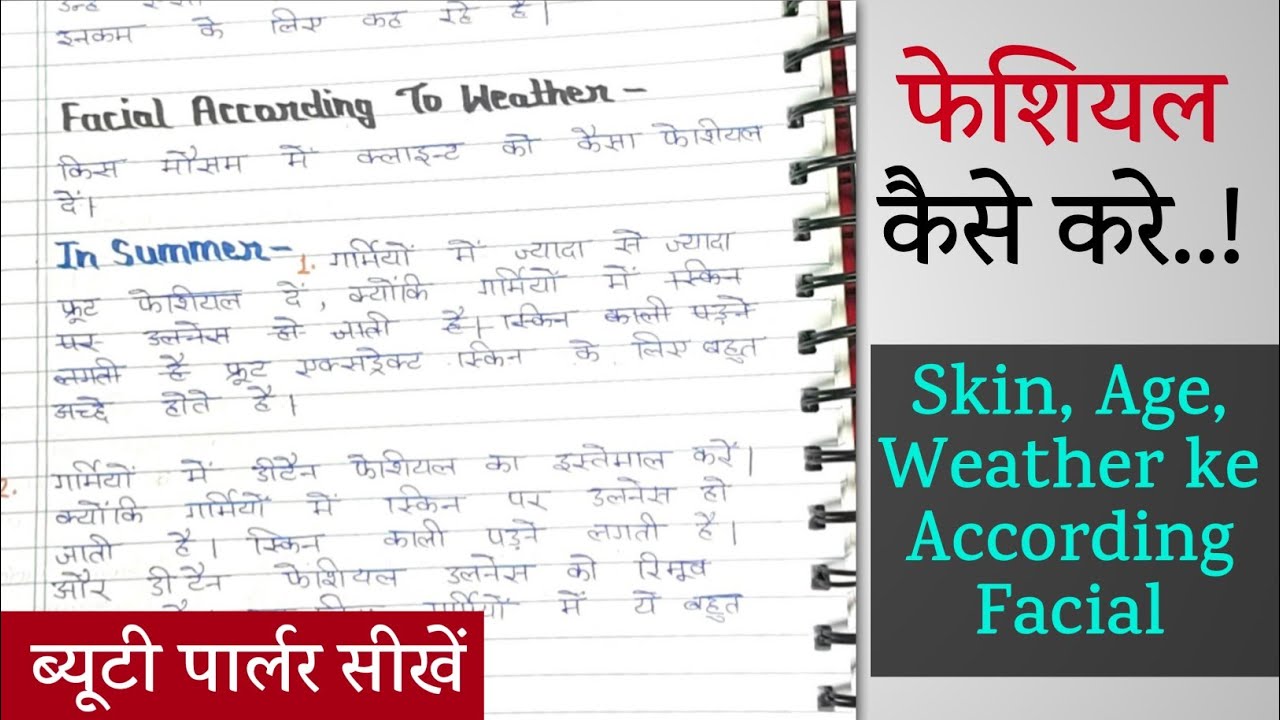 इनकम के लिए कह रहे है।
Facial According To Weather -
किस मौसम में क्लाइन्ट को कैसा फेशियल
दें।
In Summer - 1. गर्मियों में ज्यादा से ज्यादा
फ्रूट फेशियल दें, क्योंकि गर्मियों में स्किन
पर डलनेस हो जाती है। स्किन काली पड़ने
लगती है फ्रूट एक्सट्रेक्ट स्किन के लिए बहुत
अच्छे होते है।
2. गर्मियों में डीटैन फेशियल का इस्तेमाल करें।
क्योंकि गर्मियों में स्किन पर डलनेस हो
जाती है। स्किन काली पड़ने लगती है।
और डीटैन फेशियल डलनेस को रिमूव
गर्मियों में ये बहुत
ब्यूटी पार्लर सीखें
फेशियल
कैसे करे..!
Skin, Age,
Weather ke
According
Facial